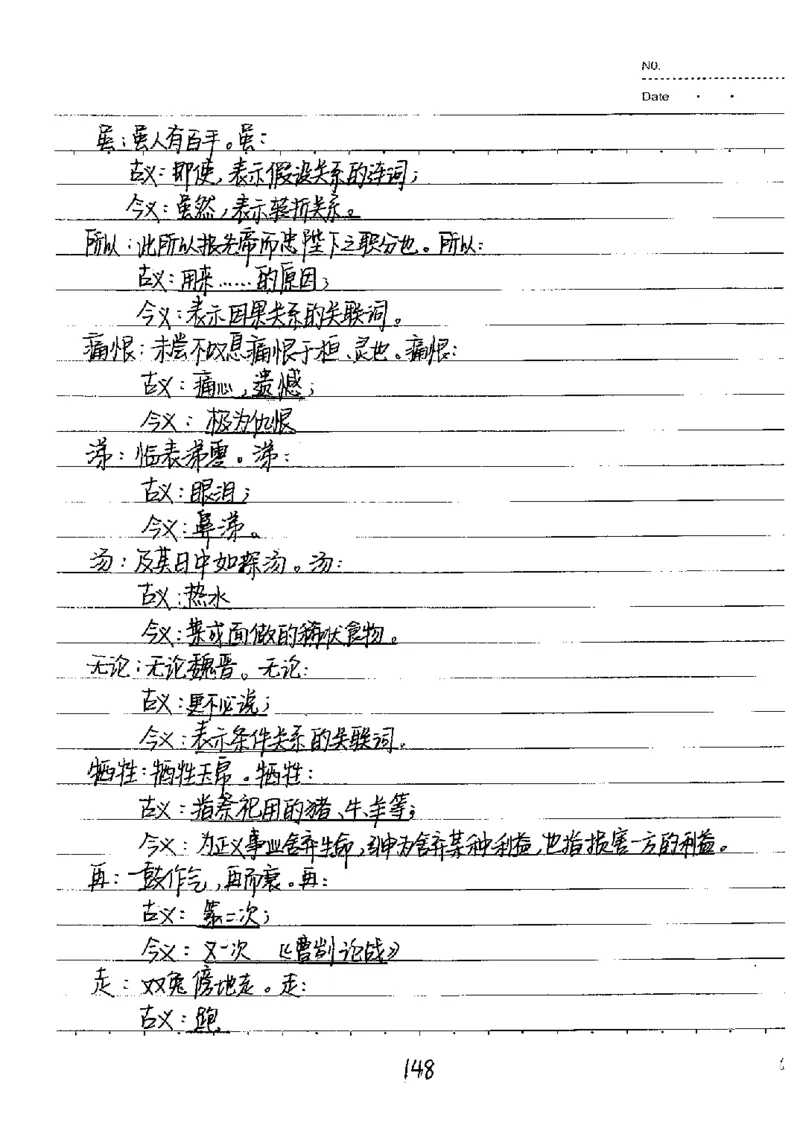 No.
Date
虽：虽人有百手。虽：
古义：即使，表示假设关系的连词；
今义：虽然，表示转折关系。
所以：此所以报先帝而忠陛下之职分也。所以：
古义：用来……的原因；
今义：表示因果关系的关联词。
痛恨：未尝不叹息痛恨于桓、灵也。痛恨：
古义：痛心，遗憾；
今义：极为仇恨
涕：临表涕零。涕：
古义：眼泪；
今义：鼻涕。
汤：及其日中如探汤。汤：
古义：热水
今义：菜或面做的稀状食物。
无论：无论魏晋。无论：
古义：更不必说；
今义：表示条件关系的关联词。
牺牲：牺牲玉帛。牺牲：
古义：指祭祀用的猪、牛、羊等；
今义：为正义事业舍弃生命，引申为舍弃某种利益，也指损害一方的利益。
再：一鼓作气，再而衰。再：
古义：第二次；
今义：又一次 《曹刿论战》
走：双兔傍地走。走：
古义：跑
148